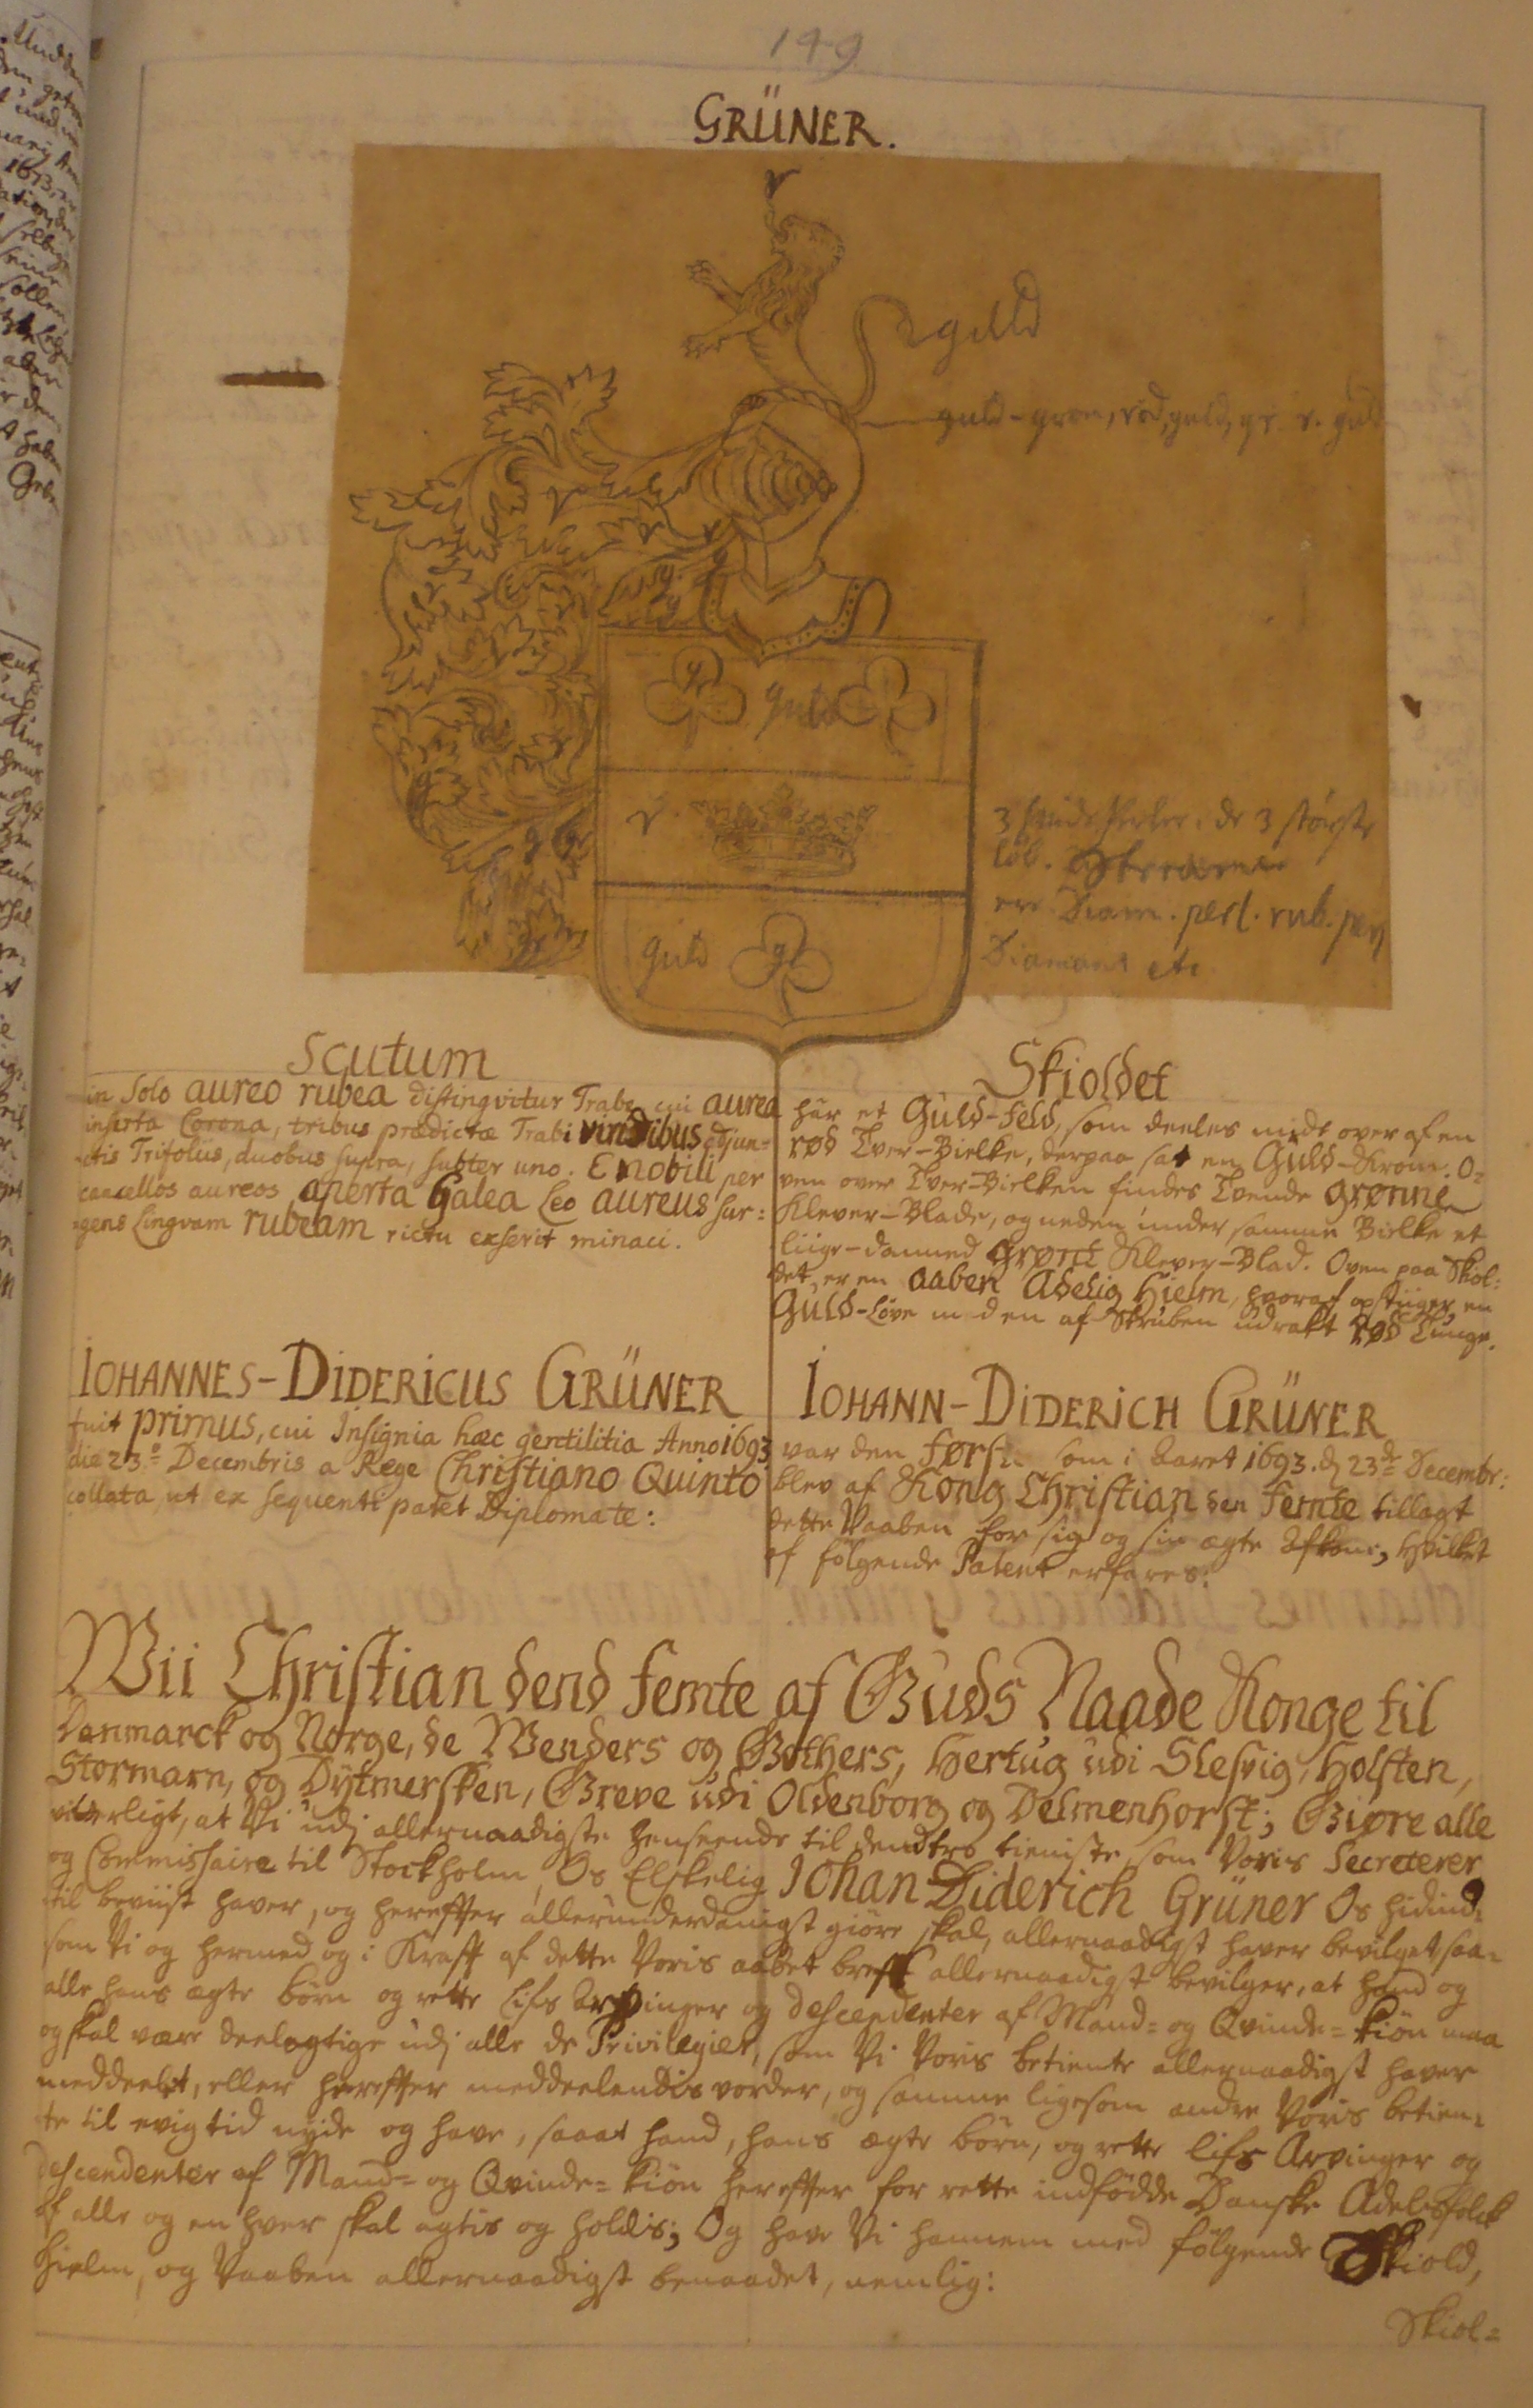 149
GRÜNER.
r
guld
guld-grøn, rød, guld, gr. r. guld
g
guld
r.
guld
g
3 de 3 største
løb.
ere Diam. perl. rub. perl
Diamant etc
Scutum
in Solo aureo rubea distingvitur Trabe cui aurea
inserta Corona, tribus prædictæ Trabi viridibus adjun=
ctis Trifoliis, duobus supra, subter uno. E nobili per
cancellos aureos aperta Galea Leo aureus sur=
gens Lingvam rubeam rictu exserit minaci.
Skioldet
har et Guld-Feld, som deeles midt over af en
rød Tver-Bielke, derpaa sat en Guld-Krone. O=
ven over Tver-Bielken findes Tvende grønne
Klever-Blade, og neden under samme Bielke et
liige-danned grønt Klever-Blad. Oven paa Skiol=
det er en aaben Adelig Hielm, hvoraf opstiiger en
Guld-Løve med en af Struben udrakt rød Tunge.
IOHANNES-DIDERICUS GRÜNER
fuit primus, cui Insignia hæc gentilitia Anno 1693
die 23º Decembris a Rege Christiano Quinto
collata ut ex sequenti patet Diplomate:
IOHANN-DIDERICH GRÜNER
var den første som i Aaret 1693. d. 23de Decembr:
blev af Kong Christian den Femte tillagt
dette Vaaben for sig og sin ægte Afkom, hvilket
af følgende Patent erfares:
Wii Christian dend femte af Guds Naade Konge til
Danmarck og Norge, de Wenders og Gothers, Hertug udi Slesvig, Holsten,
Stormarn, og Dytmersken, Greve udi Oldenborg og Delmenhorst; Giøre alle
vitterligt, at Vi udj allernaadigste henseende til dend tro tieniste, som Voris Secreterer
og Commissaire til Stockholm, Os Elskelig Johan Diderich Grüner Os hidind=
til beviist haver, og herefter allerunderdanigst giøre skal, allernaadigst haver bevilget saa=
som Vi og hermed og i Kraft af dette Voris aabet breff allernaadigst bevilger, at hand og
alle hans ægte børn og rette Lifs Arvinger og descendenter af Mand= og Qvinde= kiøn maa
og skal være deelagtige udj alle de Privilegier, som Vi Voris betiente allernaadigst haver
meddeelet, eller herefter meddeelendis vorder, og samme ligesom andre Voris betien=
te til evig tid nyde og have, saaat hand, hans ægte børn, og rette lifs Arvinger og
descendenter af Mand= og Qvinde= kiøn herefter for rette indfødde Danske Adelsfolck
af alle og en hver skal agtis og holdis; Og have Vi hannem med følgende Skiold,
Hielm, og Vaaben allernaadigst benaadet, nemlig:
Skiol=